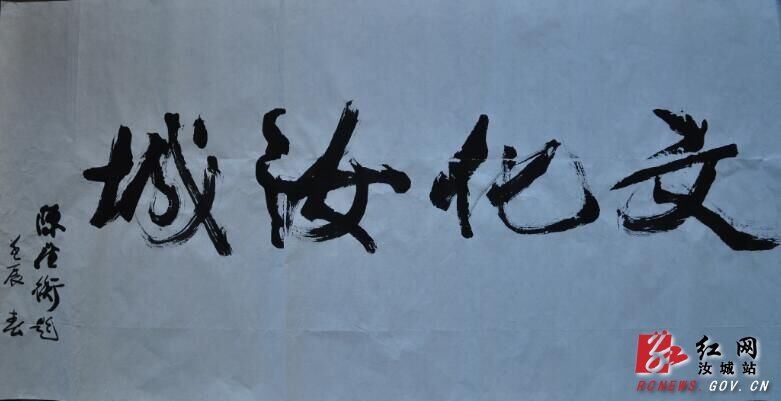 文化汝城
陈登衡题
壬辰春
红网
汝城站
RCNEWS.GOV.CN